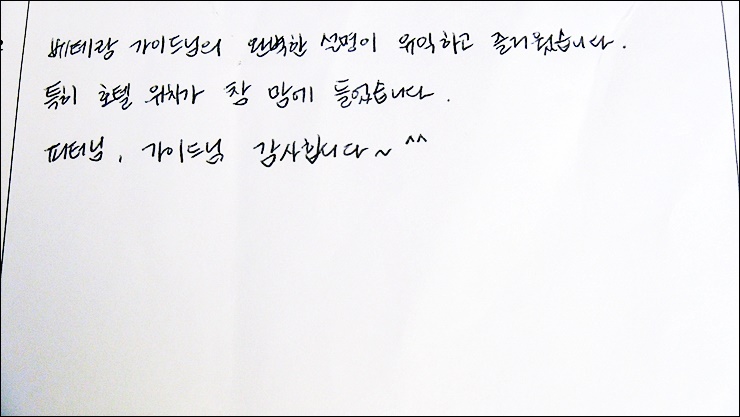 베테랑 가이드님의 완벽한 설명이 유익하고 즐거웠습니다.
특히 호텔 위치가 참 맘에 들었습니다.
피터님, 가이드님 감사합니다~ ^^